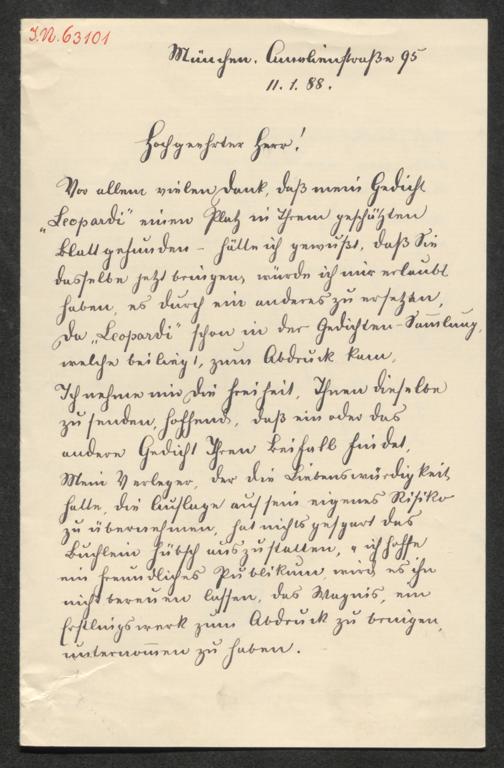 I.N. 63101
München. Amalienstraße 95
11. 1. 88.
Hochgeehrter Herr!
Vor allem vielen Dank, daß mein Gedicht
„Leopardi“ einen Platz in Ihrem geschätzten
Blatt gefunden – hätte ich gewußt, daß Sie
dasselbe jetzt bringen, würde ich mir erlaubt
haben, es durch ein anderes zu ersetzen,
da „Leopardi“ schon in der Gedichten-Sammlung,
welche beiliegt, zum Abdruck kam.
Ich nehme mir die Freiheit, Ihnen dieselbe
zu senden, hoffend, daß ein oder das
andere Gedicht Ihren Beifall findet.
Mein Verleger, der die Liebenswürdigkeit
hatte, die Auslage auf sein eigenes Risiko
zu übernehmen, hat nichts gespart das
Büchlein hübsch auszustatten, u ich hoffe
ein freundliches Publikum wird es ihn
nicht bereuen lassen, das Wagnis, ein
Erstlingswerk zum Abdruck zu bringen,
unternommen zu haben.